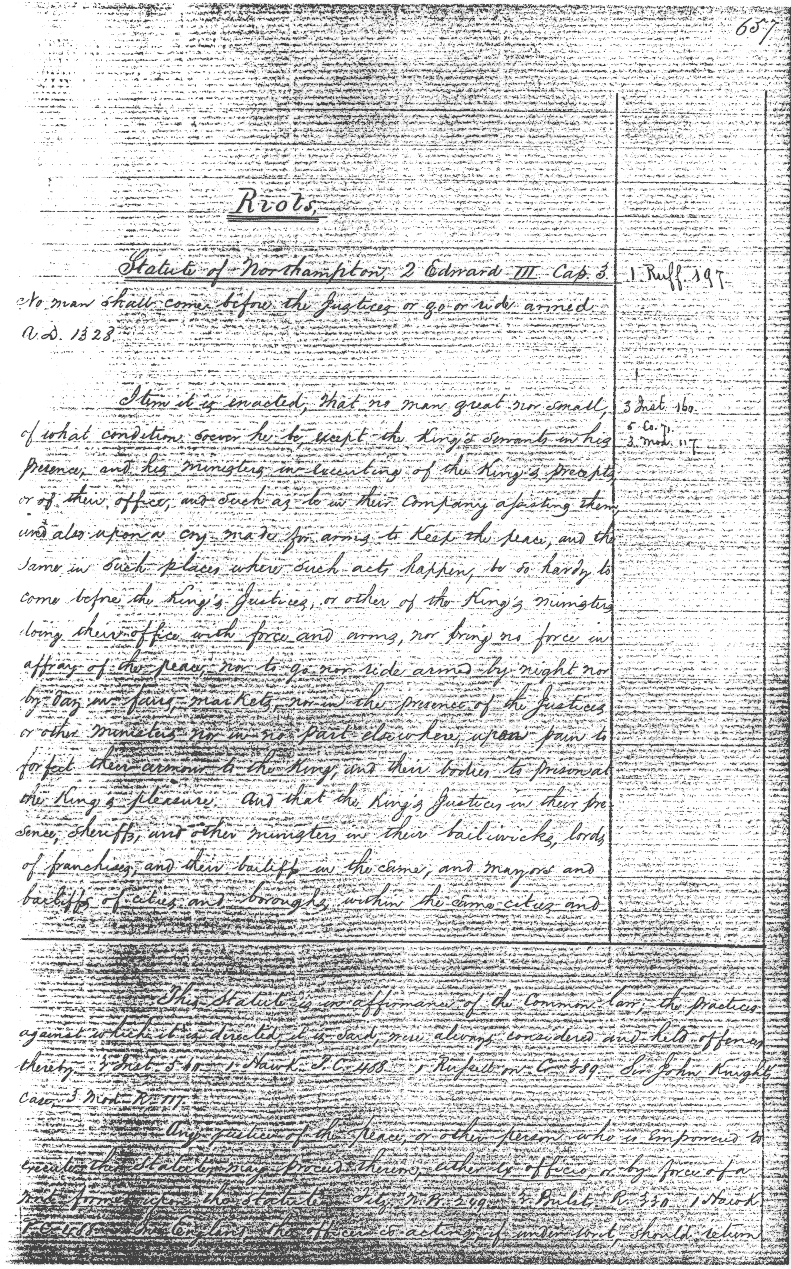 657
Riots,
Statute of Northampton, 2 Edward III Cap. 3
1 Ruff. 197
No man shall come before the Justices or go or ride armed
A.D. 1328
Item it is enacted, that no man great nor small,
3 Inst. 160.
of what condition soever he be, except the King's servants in his
5 Co. 71.
3 Mod. 117
presence, and his ministers in executing of the King's precepts,
or of their office, and such as be in their company assisting them,
and also upon a cry made for arms to keep the peace, and the
same in such places where such acts happen, be so hardy to
come before the King's Justices, or other of the King's ministers
doing their office with force and arms, nor bring no force in
affray of the peace, nor to go nor ride armed by night nor
by day in fairs, markets, nor in the presence of the Justices
or other ministers nor in no part elsewhere, upon pain to
forfeit their armour to the King, and their bodies to prison at
the King's pleasure. And that the King's Justices in their pre
sence, sheriffs, and other ministers in their bailiwicks, lords
of franchises, and their bailiffs in the same, and mayors and
bailiffs of cities and boroughs, within the same cities and
This Statute is in affirmance of the Common law, the practices
against which it is directed, it is said, were always considered and held offences
thereby. Inst. 1 Hawk. P.C. 488. 1 Russell on C. 589. Sir John Knight's
Case, 3 Mod. R. 117.
Any justice of the peace, or other person who is empowered to
execute this Statute may proceed thereon, either ex officio, or by force of a
writ formed upon the statute. Fitz. N.B. 249. 2 Bulst. R. 330. 1 Hawk.
P.C. 488. In England, the officer so acting, if under writ, should return